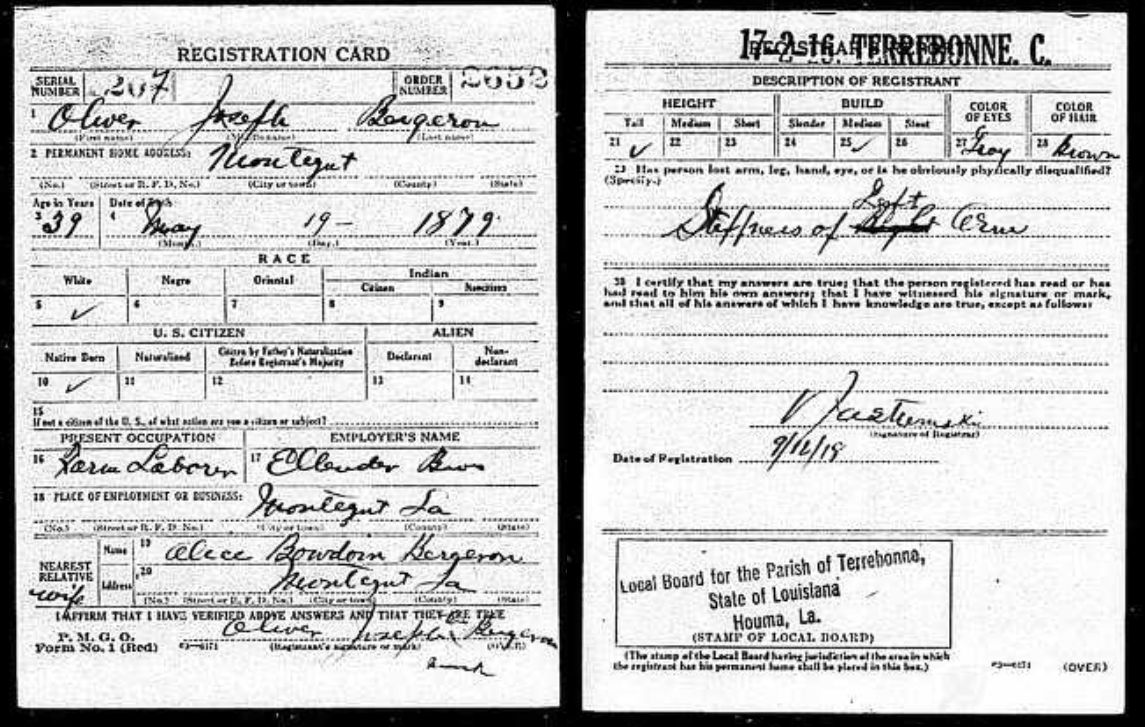 REGISTRATION CARD
SERIAL NUMBER 207 ORDER NUMBER 2652
1 Oliver Joseph Bergeron
(First name) (Middle name) (Last name)
2 PERMANENT HOME ADDRESS: Montegut
(No.) (Street or R. F. D. No.) (City or town) (County) (State)
Age in Years Date of Birth
3 39 4 May 19 - 1879
(Month.) (Day.) (Year.)
RACE
White Negro Oriental Indian
Citizen Noncitizen
5 ✓ 6 7 8 9
U. S. CITIZEN ALIEN
Native Born Naturalized Citizen by Father's Naturalization Before Registrant's Majority Declarant Non-declarant
10 ✓ 11 12 13 14
15
If not a citizen of the U. S., of what nation are you a citizen or subject?
PRESENT OCCUPATION EMPLOYER'S NAME
16 Farm Laborer 17 Ellender Bros
18 PLACE OF EMPLOYMENT OR BUSINESS:
Montegut La
(No.) (Street or R. F. D. No.) (City or town) (County) (State)
NEAREST RELATIVE Name 19 Alice Bowdoin Bergeron
wife Address 20 Montegut La
(No.) (Street or R. F. D. No.) (City or town) (County) (State)
I AFFIRM THAT I HAVE VERIFIED ABOVE ANSWERS AND THAT THEY ARE TRUE
P. M. G. O.
Form No. 1 (Red) 03—6171 Oliver Joseph Bergeron
(Registrant's signature or mark) (OVER)
REGISTRAR'S REPORT
17-2-16. TERREBONNE. C.
DESCRIPTION OF REGISTRANT
HEIGHT BUILD COLOR OF EYES COLOR OF HAIR
Tall Medium Short Slender Medium Stout
21 ✓ 22 23 24 25 ✓ 26 27 Gray 28 Brown
29 Has person lost arm, leg, hand, eye, or is he obviously physically disqualified?
(Specify.)
Left
Stiffness of Right Arm
30 I certify that my answers are true; that the person registered has read or has
had read to him his own answers; that I have witnessed his signature or mark,
and that all of his answers of which I have knowledge are true, except as follows:
(Signature of Registrar)
Date of Registration 9/12/18
Local Board for the Parish of Terrebonne,
State of Louisiana
Houma, La.
(STAMP OF LOCAL BOARD)
(The stamp of the Local Board having jurisdiction of the area in which
the registrant has his permanent home shall be placed in this box.)
03—6171 (OVER)